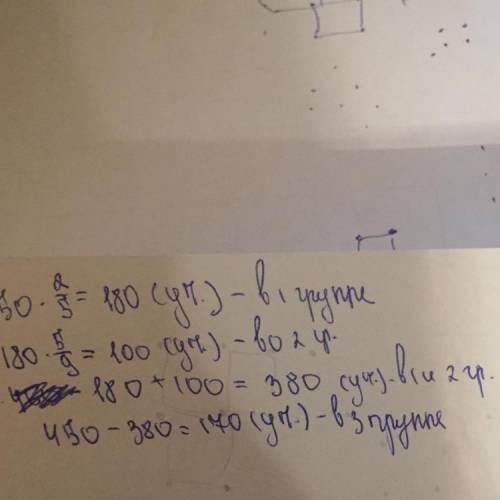 50 · 2/5 = 180 (уч.) – в 1 группе
180 · 5/9 = 100 (уч.) – во 2 гр.
180 + 100 = 380 (уч.) – в 1 и 2 гр.
450 – 380 = 170 (уч.) – в 3 группе